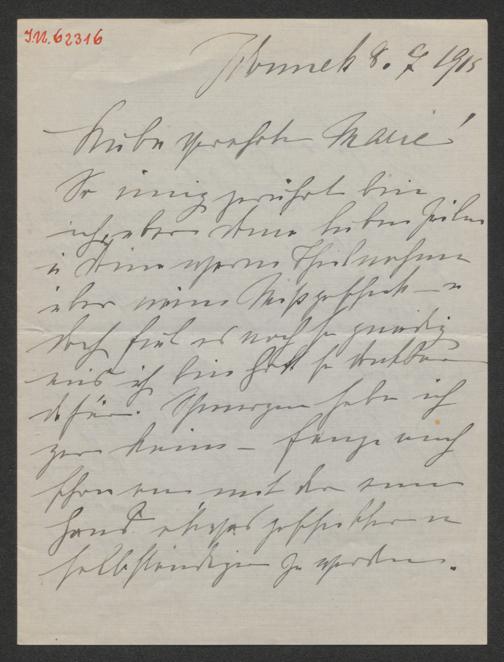 I.N. 62316
8. 7 1915
Liebe verehrte Marie!
So innig gerührt bin
ich über Deine lieben Zeilen
u Deine warme Theilnahme
über mein Mißgeschick – u
doch fiel es noch so gnädig
aus ich bin Gott so dankbar
dafür. Schmerzen habe ich
gar keine – fange auch
schon an mit der einen
Hand etwas geschickter u
selbständiger zu werden.